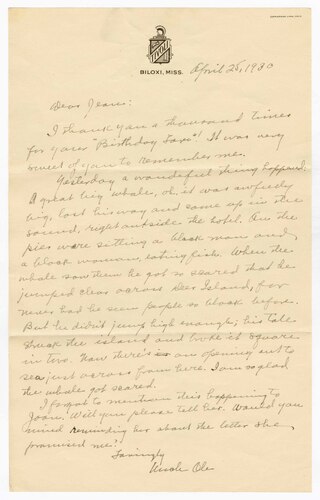 TIVOLI
BILOXI, MISS.
April 25, 1930
Dear Jean:
I thank you a thousand times
for your "Birthday Love"! It was very
sweet of you to remember me.
Yesterday a wonderful thing happened.
A great big whale, oh, it was awfully
big, lost his way and came up in the
sound, right outside the hotel. On the
pier were sitting a black man and
a black woman, eating fish. When the
whale saw them he got so scared that he
jumped clear across Deer Island, for
never had he seen people so black before.
But he didn't jump high enough; his tale
struck the island and broke it square
in two. Now there's an opening out to
sea just across from here. I am so glad
the whale got scared.
I forgot to mention this happening to
Joan. Will you please tell her. Would you
mind reminding her about the letter she
promised me?
Lovingly
Uncle Ole